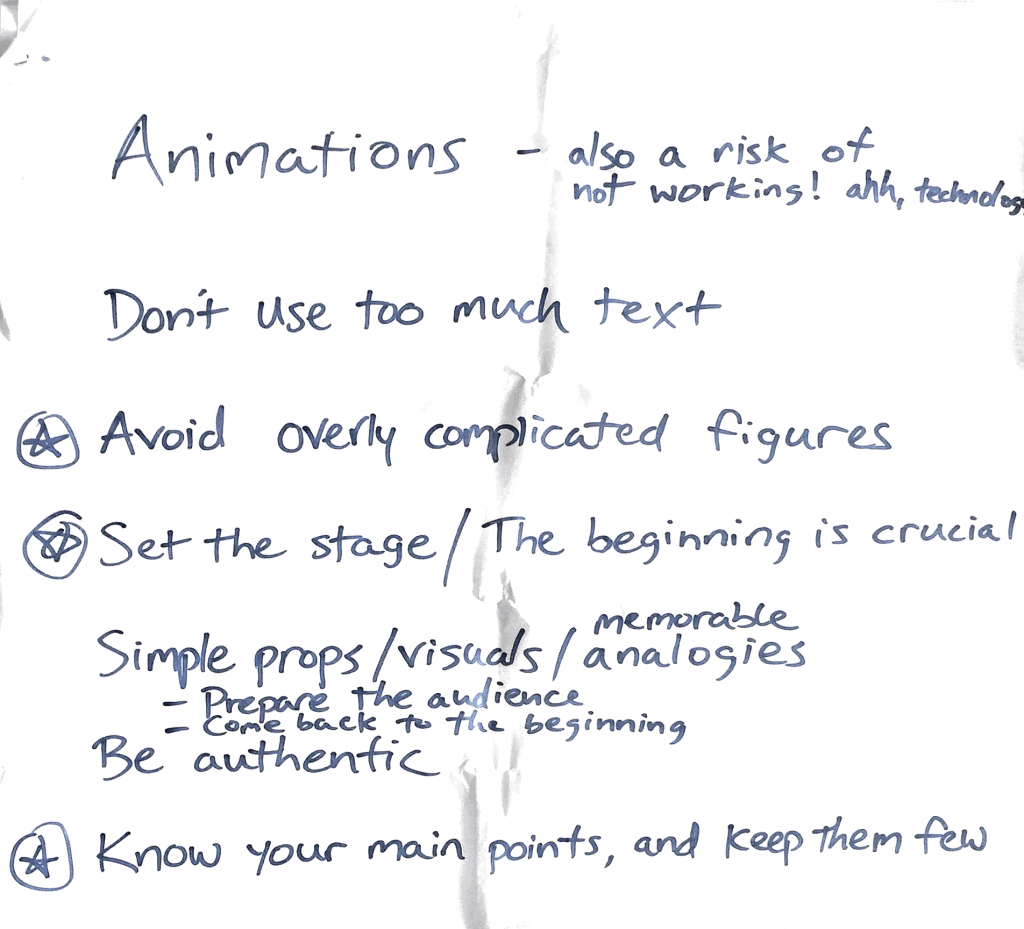 Animations - also a risk of
not working! ahh, technology
Don't use too much text
Avoid overly complicated figures
Set the stage / The beginning is crucial
memorable
Simple props / visuals / analogies
- Prepare the audience
- Come back to the beginning
Be authentic
Know your main points, and keep them few